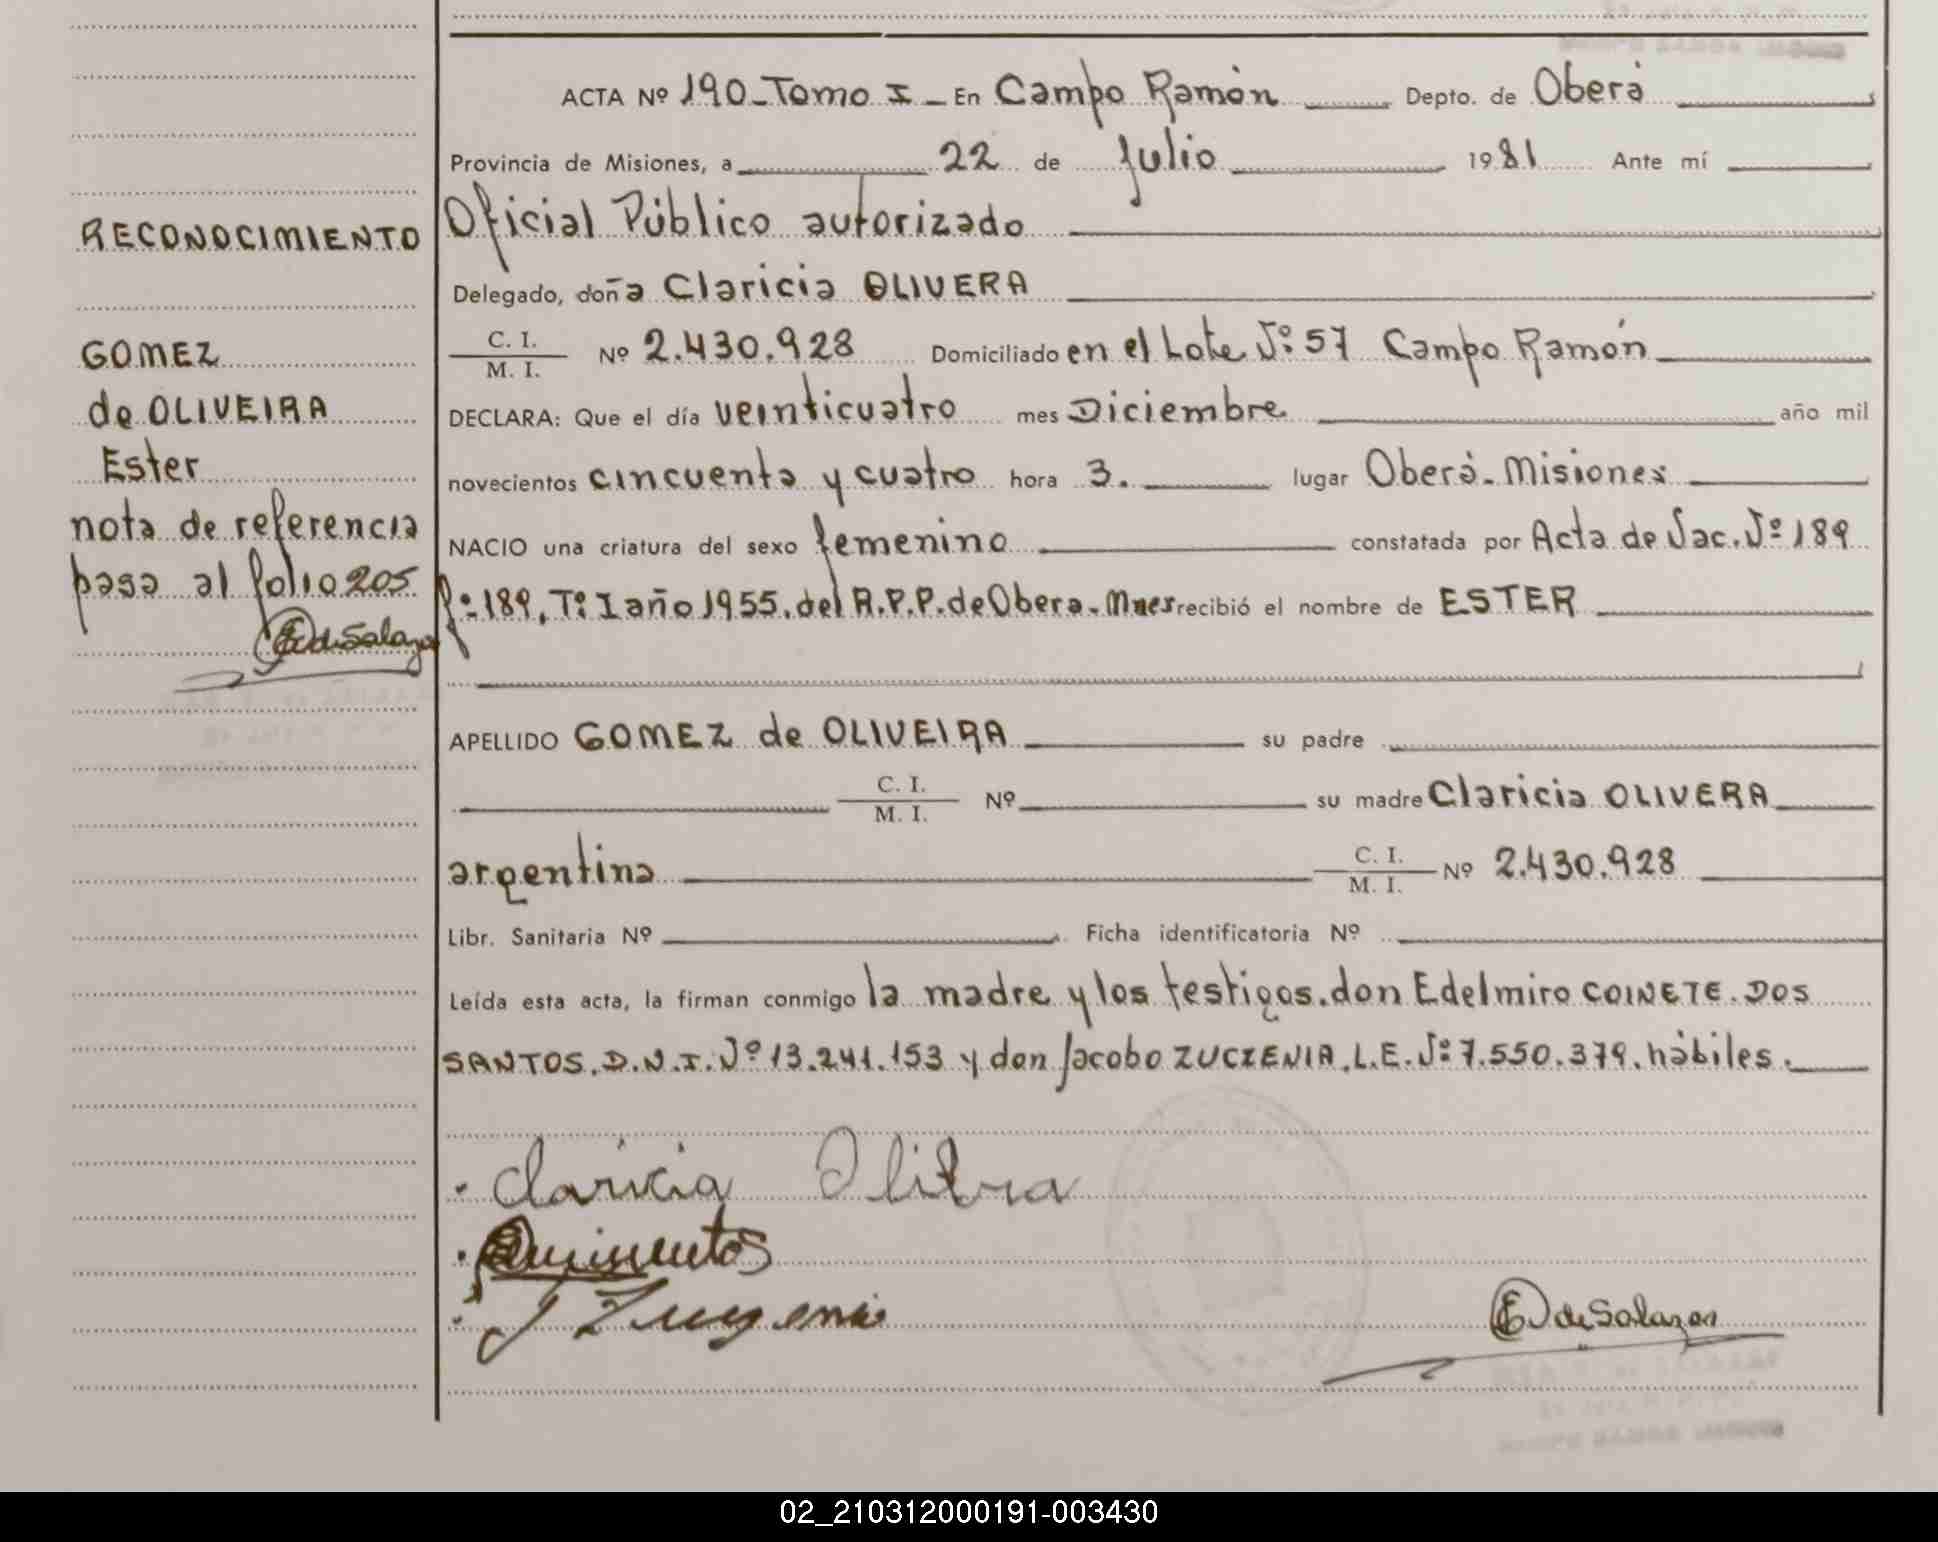 ACTA Nº 190 - Tomo I - En Campo Ramón Depto. de Oberá
Provincia de Misiones, a 22 de Julio 1981 Ante mí
RECONOCIMIENTO
Oficial Público autorizado
Delegado, doña Claricia OLIVERA
GOMEZ
C. I. / M. I. Nº 2.430.928 Domiciliado en el Lote Nº 57 Campo Ramón
de OLIVEIRA
DECLARA: Que el día veinticuatro mes Diciembre año mil
Ester
novecientos cincuenta y cuatro hora 3. lugar Oberá - Misiones
nota de referencia
NACIO una criatura del sexo femenino constatada por Acta de Nac. Nº 189
pasa al folio 205
fº 189, Tº I año 1955. del R.P.P. de Obera - Mnes recibió el nombre de ESTER
de Salazar
APELLIDO GOMEZ de OLIVEIRA su padre
C. I. / M. I. Nº su madre Claricia OLIVERA
argentina C. I. / M. I. Nº 2.430.928
Libr. Sanitaria Nº Ficha identificatoria Nº
Leída esta acta, la firman conmigo la madre y los testigos. don Edelmiro COINETE. DOS
SANTOS. D.N.I. Nº 13.241.153 y don Jacobo ZUCZENIA. L.E. Nº 7.550.379. hábiles.
Claricia Olibra
de Salazar
02_210312000191-003430